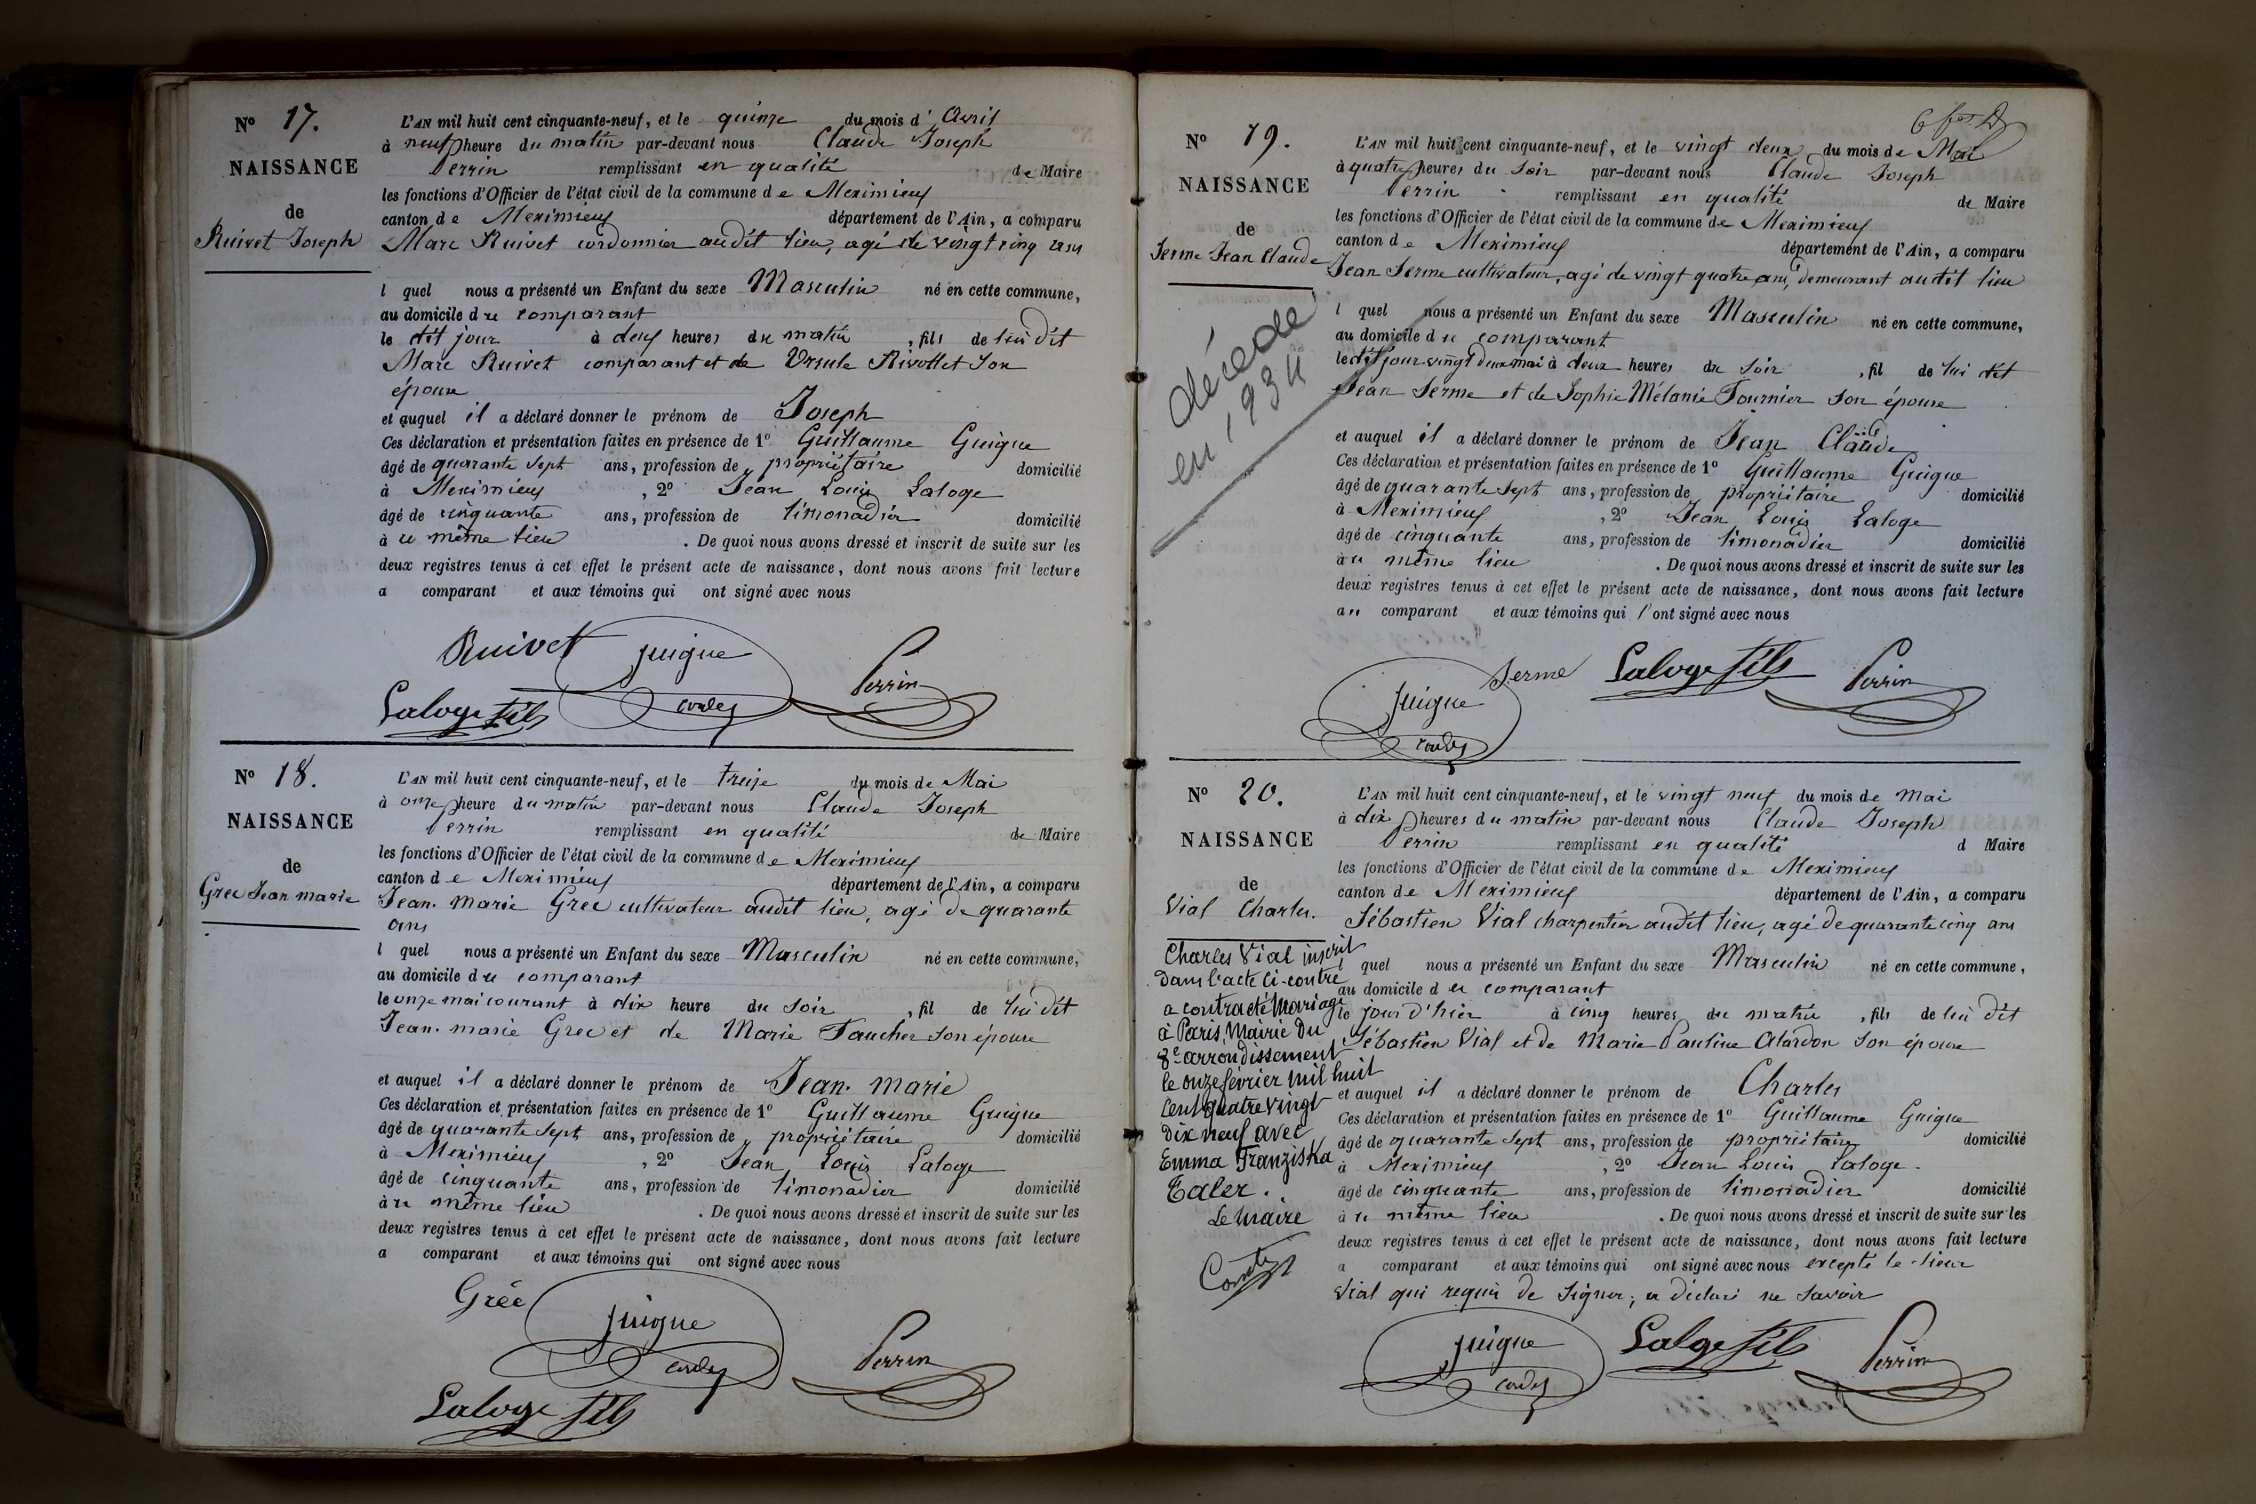 N° 17.
NAISSANCE
de
Ruivet Joseph
L'AN mil huit cent cinquante-neuf, et le quinze du mois d' Avril
à neuf heure du matin par-devant nous Claude Joseph
Perrin remplissant en qualité de Maire
les fonctions d'Officier de l'état civil de la commune de Meximieux
canton de Meximieux département de l'Ain, a comparu
Marc Ruivet cordonnier audit lieu, agé de vingt cinq ans
l quel nous a présenté un Enfant du sexe Masculin né en cette commune,
au domicile du comparant
le dit jour à deux heures du matin, fils de lui dit
Marc Ruivet comparant et de Ursule Rivollet son
épouse
et auquel il a déclaré donner le prénom de Joseph
Ces déclaration et présentation faites en présence de 1° Guillaume Guigue
âgé de quarante sept ans, profession de propriétaire domicilié
à Meximieux, 2° Jean Louis Laloge
âgé de cinquante ans, profession de limonadier domicilié
à u même lieu. De quoi nous avons dressé et inscrit de suite sur les
deux registres tenus à cet effet le présent acte de naissance, dont nous avons fait lecture
a comparant et aux témoins qui ont signé avec nous
Ruivet Guigue Perrin
Laloge fils
N° 18.
NAISSANCE
de
Grec Jean marie
L'AN mil huit cent cinquante-neuf, et le treize du mois de Mai
à onze heure du matin par-devant nous Claude Joseph
Perrin remplissant en qualité de Maire
les fonctions d'Officier de l'état civil de la commune de Meximieux
canton de Meximieux département de l'Ain, a comparu
Jean-marie Grec cultivateur audit lieu, agé de quarante
ans
l quel nous a présenté un Enfant du sexe Masculin né en cette commune,
au domicile du comparant
le onze mai courant à dix heure du soir, fil de lui dit
Jean-marie Grec et de Marie Faucher son épouse
et auquel il a déclaré donner le prénom de Jean-marie
Ces déclaration et présentation faites en présence de 1° Guillaume Guigue
âgé de quarante sept ans, profession de propriétaire domicilié
à Meximieux, 2° Jean Louis Laloge
âgé de cinquante ans, profession de limonadier domicilié
à u même lieu. De quoi nous avons dressé et inscrit de suite sur les
deux registres tenus à cet effet le présent acte de naissance, dont nous avons fait lecture
a comparant et aux témoins qui ont signé avec nous
Grec Guigue Perrin
Laloge fils
N° 19.
NAISSANCE
de
Serme Jean Claude
décédé
en 1934
L'AN mil huit cent cinquante-neuf, et le vingt deux du mois de Mai
à quatre heures du soir par-devant nous Claude Joseph
Perrin remplissant en qualité de Maire
les fonctions d'Officier de l'état civil de la commune de Meximieux
canton de Meximieux département de l'Ain, a comparu
Jean Serme cultivateur, agé de vingt quatre ans, demeurant audit lieu
l quel nous a présenté un Enfant du sexe Masculin né en cette commune,
au domicile du comparant
le dit jour vingt deux mai à deux heures du soir, fil de lui dit
Jean Serme et de Sophie Mélanie Fournier son épouse
et auquel il a déclaré donner le prénom de Jean Claude
Ces déclaration et présentation faites en présence de 1° Guillaume Guigue
âgé de quarante sept ans, profession de propriétaire domicilié
à Meximieux, 2° Jean Louis Laloge
âgé de cinquante ans, profession de limonadier domicilié
à u même lieu. De quoi nous avons dressé et inscrit de suite sur les
deux registres tenus à cet effet le présent acte de naissance, dont nous avons fait lecture
au comparant et aux témoins qui l'ont signé avec nous
Guigue Serme Laloge fils Perrin
N° 20.
NAISSANCE
de
Vial Charles.
Charles Vial inscrit
dans l'acte ci-contre
a contracté Mariage
à Paris, Mairie du
8e arrondissement
le onze février mil huit
cent quatre vingt
dix neuf avec
Emma Franziska
Taler.
Le Maire
L'AN mil huit cent cinquante-neuf, et le vingt neuf du mois de mai
à dix heures du matin par-devant nous Claude Joseph
Perrin remplissant en qualité d Maire
les fonctions d'Officier de l'état civil de la commune de Meximieux
canton de Meximieux département de l'Ain, a comparu
Sébastien Vial charpentier audit lieu, agé de quarante cinq ans
l quel nous a présenté un Enfant du sexe Masculin né en cette commune,
au domicile du comparant
le jour d'hier à cinq heures du matin, fils de lui dit
Sébastien Vial et de Marie Pauline Alardon son épouse
et auquel il a déclaré donner le prénom de Charles
Ces déclaration et présentation faites en présence de 1° Guillaume Guigue
âgé de quarante sept ans, profession de propriétaire domicilié
à Meximieux, 2° Jean Louis Laloge.
âgé de cinquante ans, profession de limonadier domicilié
à u même lieu. De quoi nous avons dressé et inscrit de suite sur les
deux registres tenus à cet effet le présent acte de naissance, dont nous avons fait lecture
a comparant et aux témoins qui ont signé avec nous excepté le sieur
Vial qui requis de signer, a déclaré ne savoir
Guigue Laloge fils Perrin